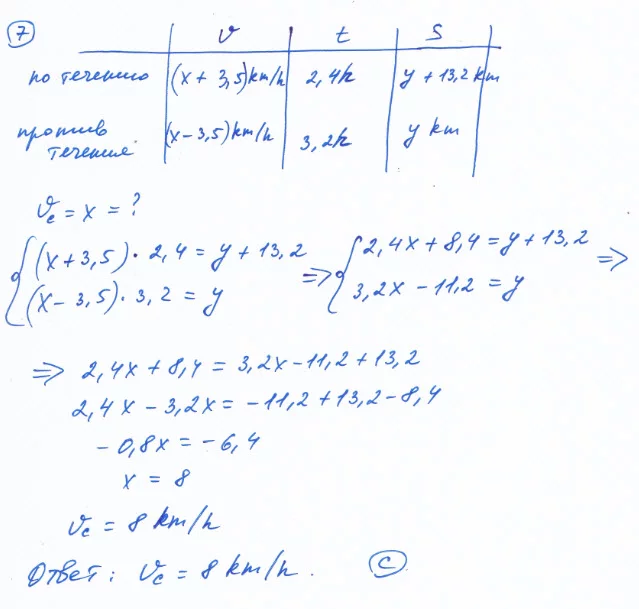 7
v t S
по течению (x + 3,5)km/h 2,4h y + 13,2 km
против (x-3,5)km/h 3,2h y km
течения
vc = x = ?
(x+3,5)·2,4 = y+13,2 => 2,4x+8,4 = y+13,2 =>
(x-3,5)·3,2 = y 3,2x-11,2 = y
=> 2,4x+8,4 = 3,2x-11,2+13,2
2,4x-3,2x = -11,2+13,2-8,4
-0,8x = -6,4
x = 8
vc = 8 km/h
Ответ: vc = 8 km/h. C